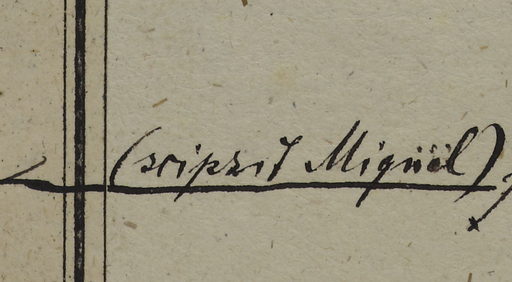 (scipsit Miguël)